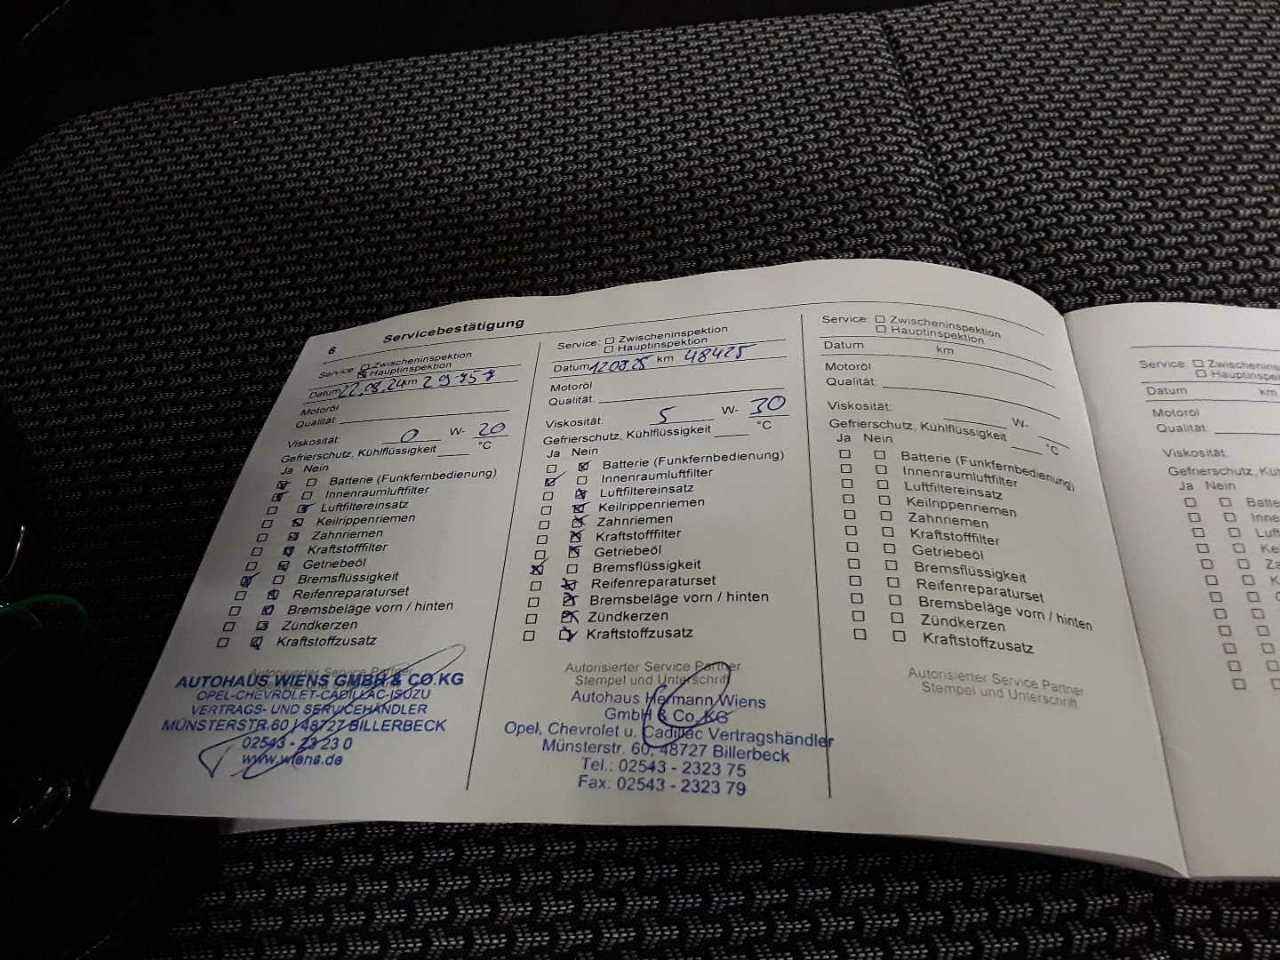 6 Servicebestätigung
Service: Zwischeninspektion
Hauptinspektion
Datum 22.08.24 km
Motoröl
Qualität:
Viskosität: 0 W- 20
Gefrierschutz, Kühlflüssigkeit °C
Ja Nein
Batterie (Funkfernbedienung)
Innenraumluftfilter
Luftfiltereinsatz
Keilrippenriemen
Zahnriemen
Kraftstofffilter
Getriebeöl
Bremsflüssigkeit
Reifenreparaturset
Bremsbeläge vorn / hinten
Zündkerzen
Kraftstoffzusatz
Autorisierter Service Partner
AUTOHAUS WIENS GMBH & CO.KG
OPEL-CHEVROLET-CADILLAC-ISUZU
VERTRAGS- UND SERVICEHÄNDLER
MÜNSTERSTR.60 / 48727 BILLERBECK
02543 - 23 23 0
www.wiens.de
Service: Zwischeninspektion
Hauptinspektion
Datum 120825 km 48425
Motoröl
Qualität:
Viskosität: 5 W- 30
Gefrierschutz, Kühlflüssigkeit °C
Ja Nein
Batterie (Funkfernbedienung)
Innenraumluftfilter
Luftfiltereinsatz
Keilrippenriemen
Zahnriemen
Kraftstofffilter
Getriebeöl
Bremsflüssigkeit
Reifenreparaturset
Bremsbeläge vorn / hinten
Zündkerzen
Kraftstoffzusatz
Autorisierter Service Partner
Stempel und Unterschrift
Autohaus Hermann Wiens
GmbH & Co. KG
Opel, Chevrolet u. Cadillac Vertragshändler
Münsterstr. 60, 48727 Billerbeck
Tel.: 02543 - 2323 75
Fax: 02543 - 2323 79
Service: Zwischeninspektion
Hauptinspektion
Datum km
Motoröl
Qualität:
Viskosität: W-
Gefrierschutz, Kühlflüssigkeit °C
Ja Nein
Batterie (Funkfernbedienung)
Innenraumluftfilter
Luftfiltereinsatz
Keilrippenriemen
Zahnriemen
Kraftstofffilter
Getriebeöl
Bremsflüssigkeit
Reifenreparaturset
Bremsbeläge vorn / hinten
Zündkerzen
Kraftstoffzusatz
Autorisierter Service Partner
Stempel und Unterschrift
Service:
Datum km
Motoröl
Qualität:
Viskosität:
Gefrierschutz,
Ja Nein